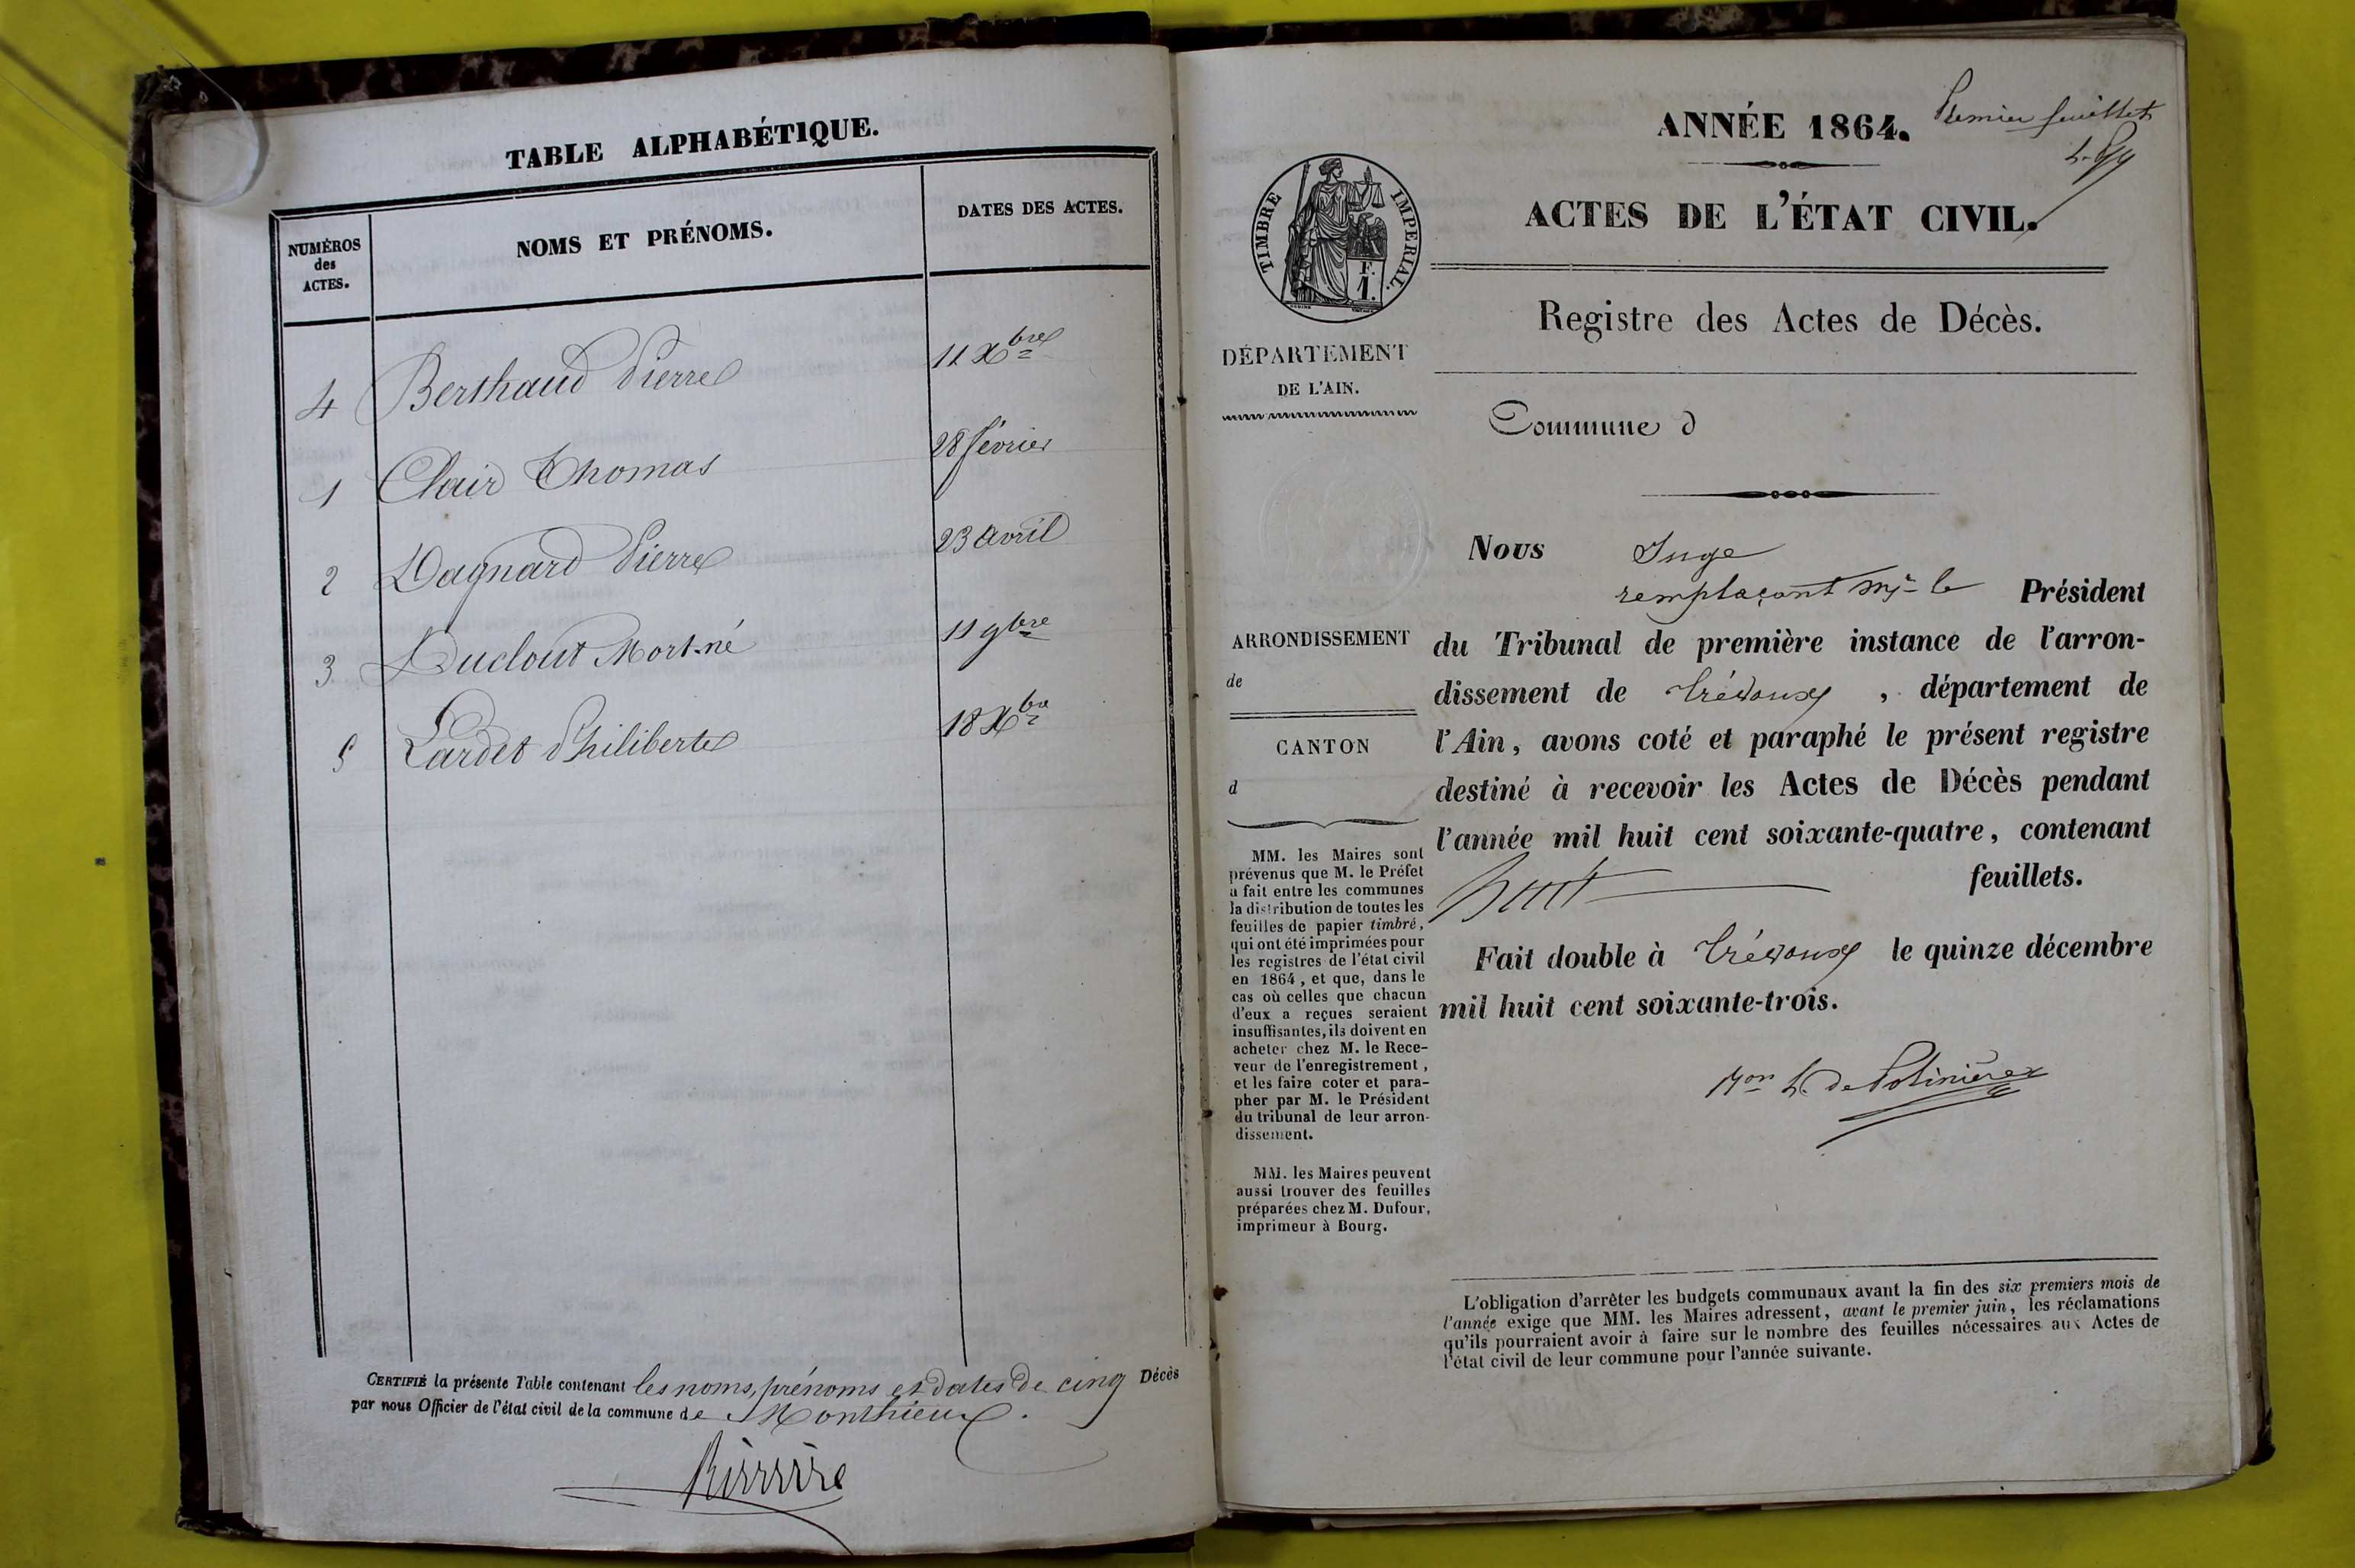 TABLE ALPHABÉTIQUE.
NUMÉROS
des
ACTES.
NOMS ET PRÉNOMS.
DATES DES ACTES.
4 Berthaud Pierre 11 Xbre
1 Clair Thomas 28 février
2 Dagnard Pierre 23 avril
3 Duclout Mort-né 11 9bre
5 Lardet Philiberte 18 Xbre
CERTIFIÉ la présente Table contenant les noms, prénoms et dates de cinq Décès
par nous Officier de l'état civil de la commune de Monthieux.
ANNÉE 1864.
Premier feuillet
ACTES DE L'ÉTAT CIVIL.
TIMBRE IMPERIAL.
F.
1.
Registre des Actes de Décès.
DÉPARTEMENT
DE L'AIN.
Commune d
Nous Juge
remplaçant Mr le Président
ARRONDISSEMENT
de
CANTON
d
du Tribunal de première instance de l'arron-
dissement de Trévoux, département de
l'Ain, avons coté et paraphé le présent registre
destiné à recevoir les Actes de Décès pendant
l'année mil huit cent soixante-quatre, contenant
huit feuillets.
Fait double à Trévoux le quinze décembre
mil huit cent soixante-trois.
MM. les Maires sont
prévenus que M. le Préfet
a fait entre les communes
la distribution de toutes les
feuilles de papier timbré,
qui ont été imprimées pour
les registres de l'état civil
en 1864, et que, dans le
cas où celles que chacun
d'eux a reçues seraient
insuffisantes, ils doivent en
acheter chez M. le Rece-
veur de l'enregistrement,
et les faire coter et para-
pher par M. le Président
du tribunal de leur arron-
dissement.
MM. les Maires peuvent
aussi trouver des feuilles
préparées chez M. Dufour,
imprimeur à Bourg.
L'obligation d'arrêter les budgets communaux avant la fin des six premiers mois de
l'année exige que MM. les Maires adressent, avant le premier juin, les réclamations
qu'ils pourraient avoir à faire sur le nombre des feuilles nécessaires aux Actes de
l'état civil de leur commune pour l'année suivante.